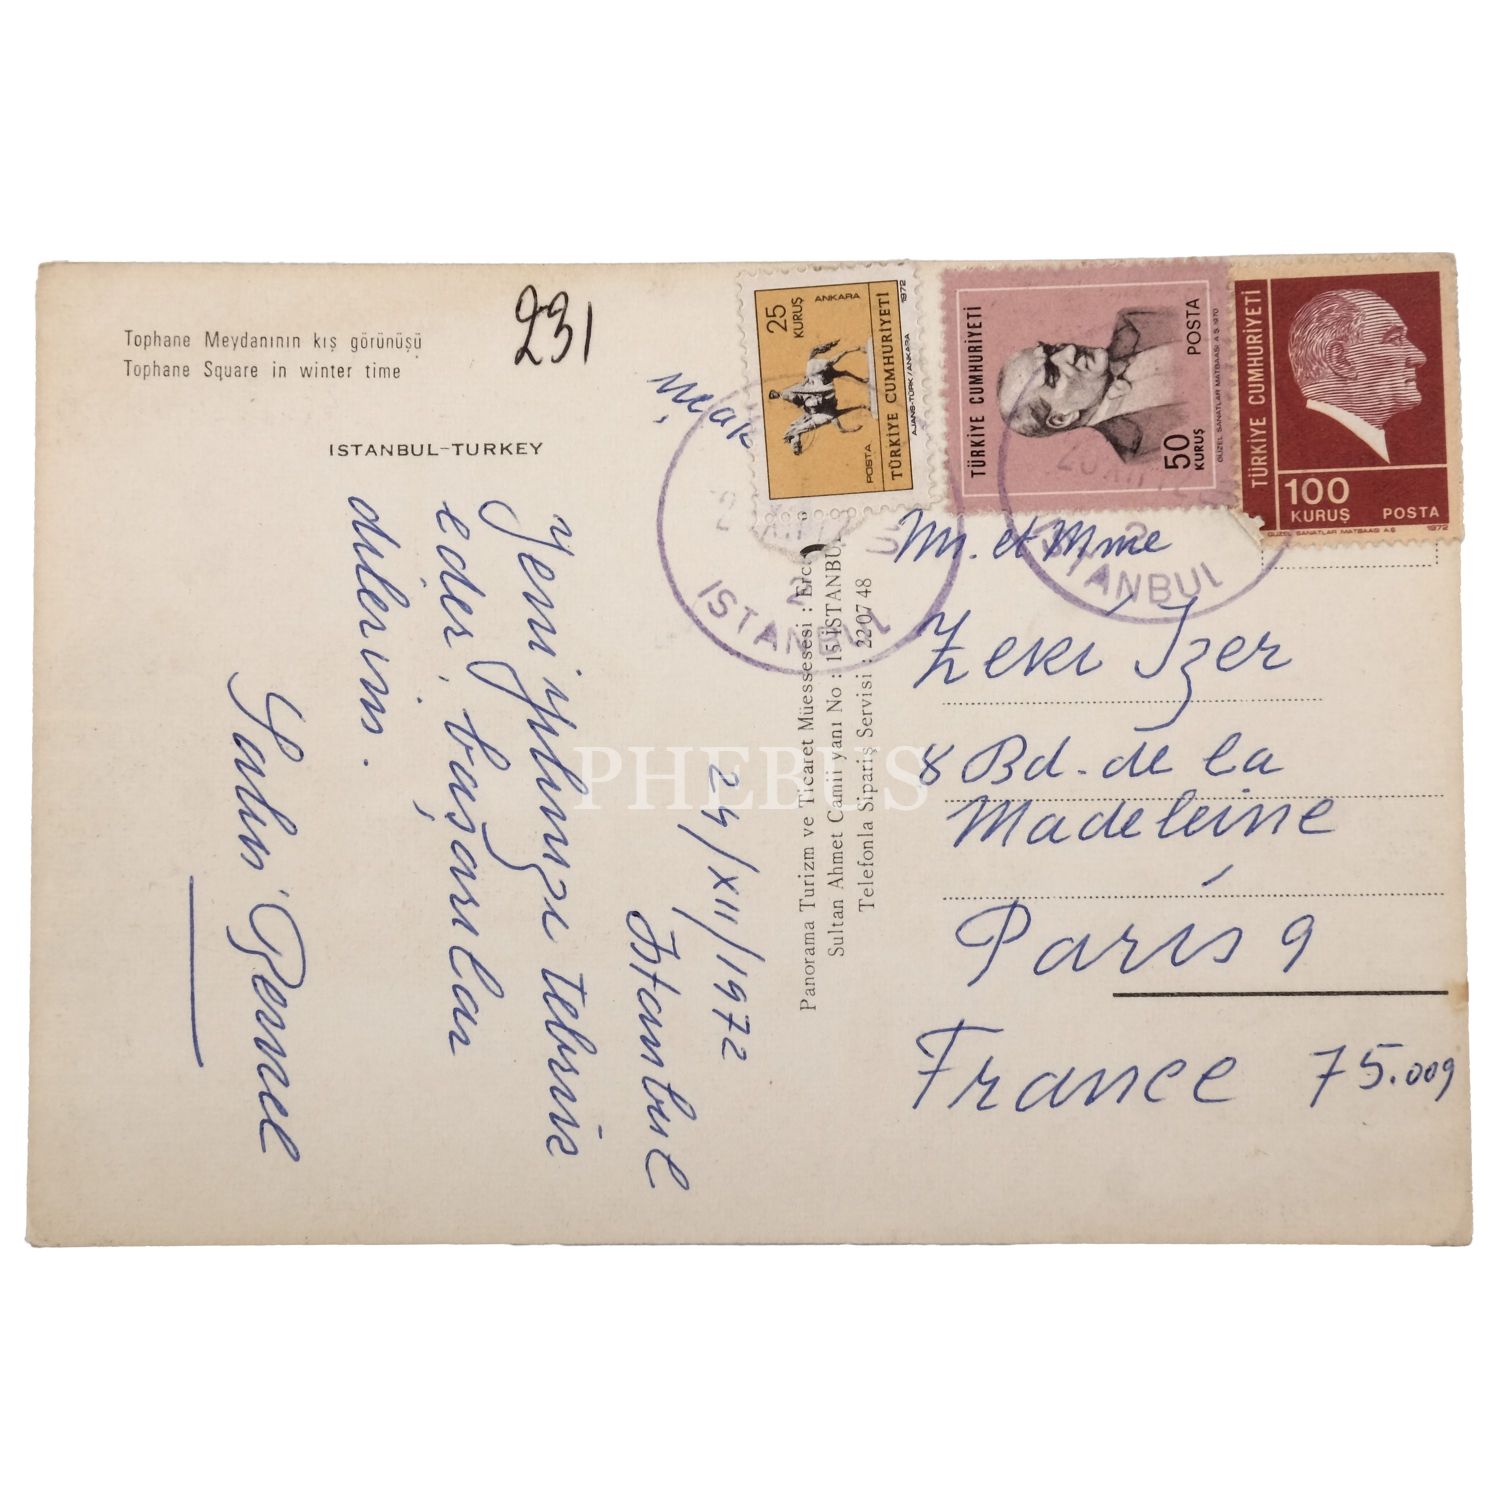 Tophane Meydanının kış görünüşü
Tophane Square in winter time
ISTANBUL-TURKEY
231
uçak
24/XII/1972
Istanbul
Yeni yılınızı tebrik
eder, başarılar
dilerim.
Panorama Turizm ve Ticaret Müessesesi :
Sultan Ahmet Camii yanı No : 15 ISTANBU
Telefonla Sipariş Servisi : 22 07 48
25
KURUŞ
ANKARA
POSTA
TÜRKİYE CUMHURİYETİ
AJANS-TÜRK/ANKARA 1972
TÜRKİYE CUMHURİYETİ
50
KURUŞ
POSTA
GÜZEL SANATLAR MATBAASI A.Ş. 1970
TÜRKİYE CUMHURİYETİ
100
KURUŞ POSTA
GÜZEL SANATLAR MATBAASI A.Ş. 1972
ISTANBUL
2
ISTANBUL
2
Mr. et Mme
Zeki Izer
8 Bd. de la
Madeleine
Paris 9
France 75.009
PHEBUS